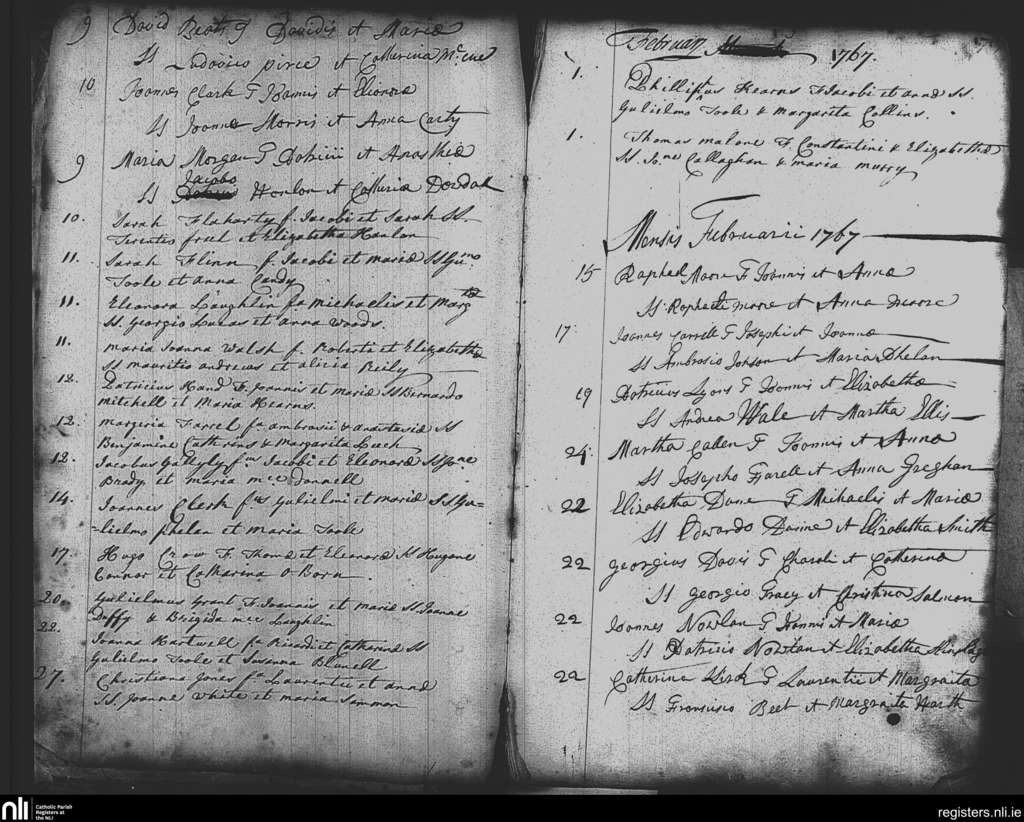 9 David Beaty F Davidis et Mariæ
SS Ludovico pirce et Catherina Mc cue
10 Joannes Clark F Joannis et Elionoræ
SS Joanne Morris et Anna Carty
9 Maria Morgan F Patricii et Anasthiæ
Jacobo
SS Hanlon et Catherina Dowdall
10. Sarah Flaharty f. Jacobi et Sarah SS
Terentio friel et Elizabetha Hanlon
11. Sarah Flinn f. Jacobi et mariæ SS
Toole et anna Candy
11. Eleanora Laughlin fa michaelis et
SS. Georgio Lucas et anna woods.
11. maria Joanna Walsh f. Roberti et Elizabethæ
SS mauritio andrews et alicia Reily
12. Patricius Hand F. Joannis et mariæ SS Bernardo
mitchell et Maria Kearns.
12. margeria Farrel fa ambrosii & anastasiæ SS
Benjamine Cathrins & Margarita Leech
12. Jacobus Gattyly Jacobi et Eleonoræ SS Jne
Brady et maria mcc Donnell
14. Joannes Clerk Gulielmi et mariæ SS Gu=
=lielmo phelan et maria Toole
17. Hugo Crow F. Thomæ et Eleanoræ SS Hugone
Connor et Catharina O Born
20. Gulielmus Grant F. Joannis et mariæ SS Joanne
Duffy & Brigida mcc Laughlin
22. Joanna Hartwell fa Ricardi et Catharinæ SS
Gulielmo Toole et Susanna Blundell
27. Christiana Jones fa Laurentii et annæ
SS. Joanne White et maria Sammon
Februarij 1767.
1. Phillippus Kearns F Jacobi et annæ SS.
Gulielmo Toole & Margarita Collins.
1. Thomas malone F. Constantini & Elizabethæ
SS Jone Callaghan & maria murry
Mensis Februarii 1767
15 Raphael Moore F Joannis et Annæ
SS Raphaele moore et Anna moore
17. Joannes Carrell F Josephi et Joannæ
SS Ambrosio Johson et Maria Phelan
19 Patricius Lyons F Joannis et Elizabethæ
SS Andrea Wale et Martha Ellis
24. Martha Callen F Joannis et Annæ
SS Josepho Farell et Anna Greghan
22 Elizabetha Dune F Michaelis et Mariæ
SS Edwardo Dunne et Elizabetha Smith
22 Georgius Davis F Charoli et Catherinæ
SS Georgio Tracy et Christina Salmon
22 Joannes Nowlan F Joannis et Mariæ
SS Patricio Nowlan et Elizabetha
22 Catherina Kirk F Laurentii et Margraita
SS Fronsisco Beet et Margraita Harth
nli Catholic Parish
Registers at
the NLI
registers.nli.ie